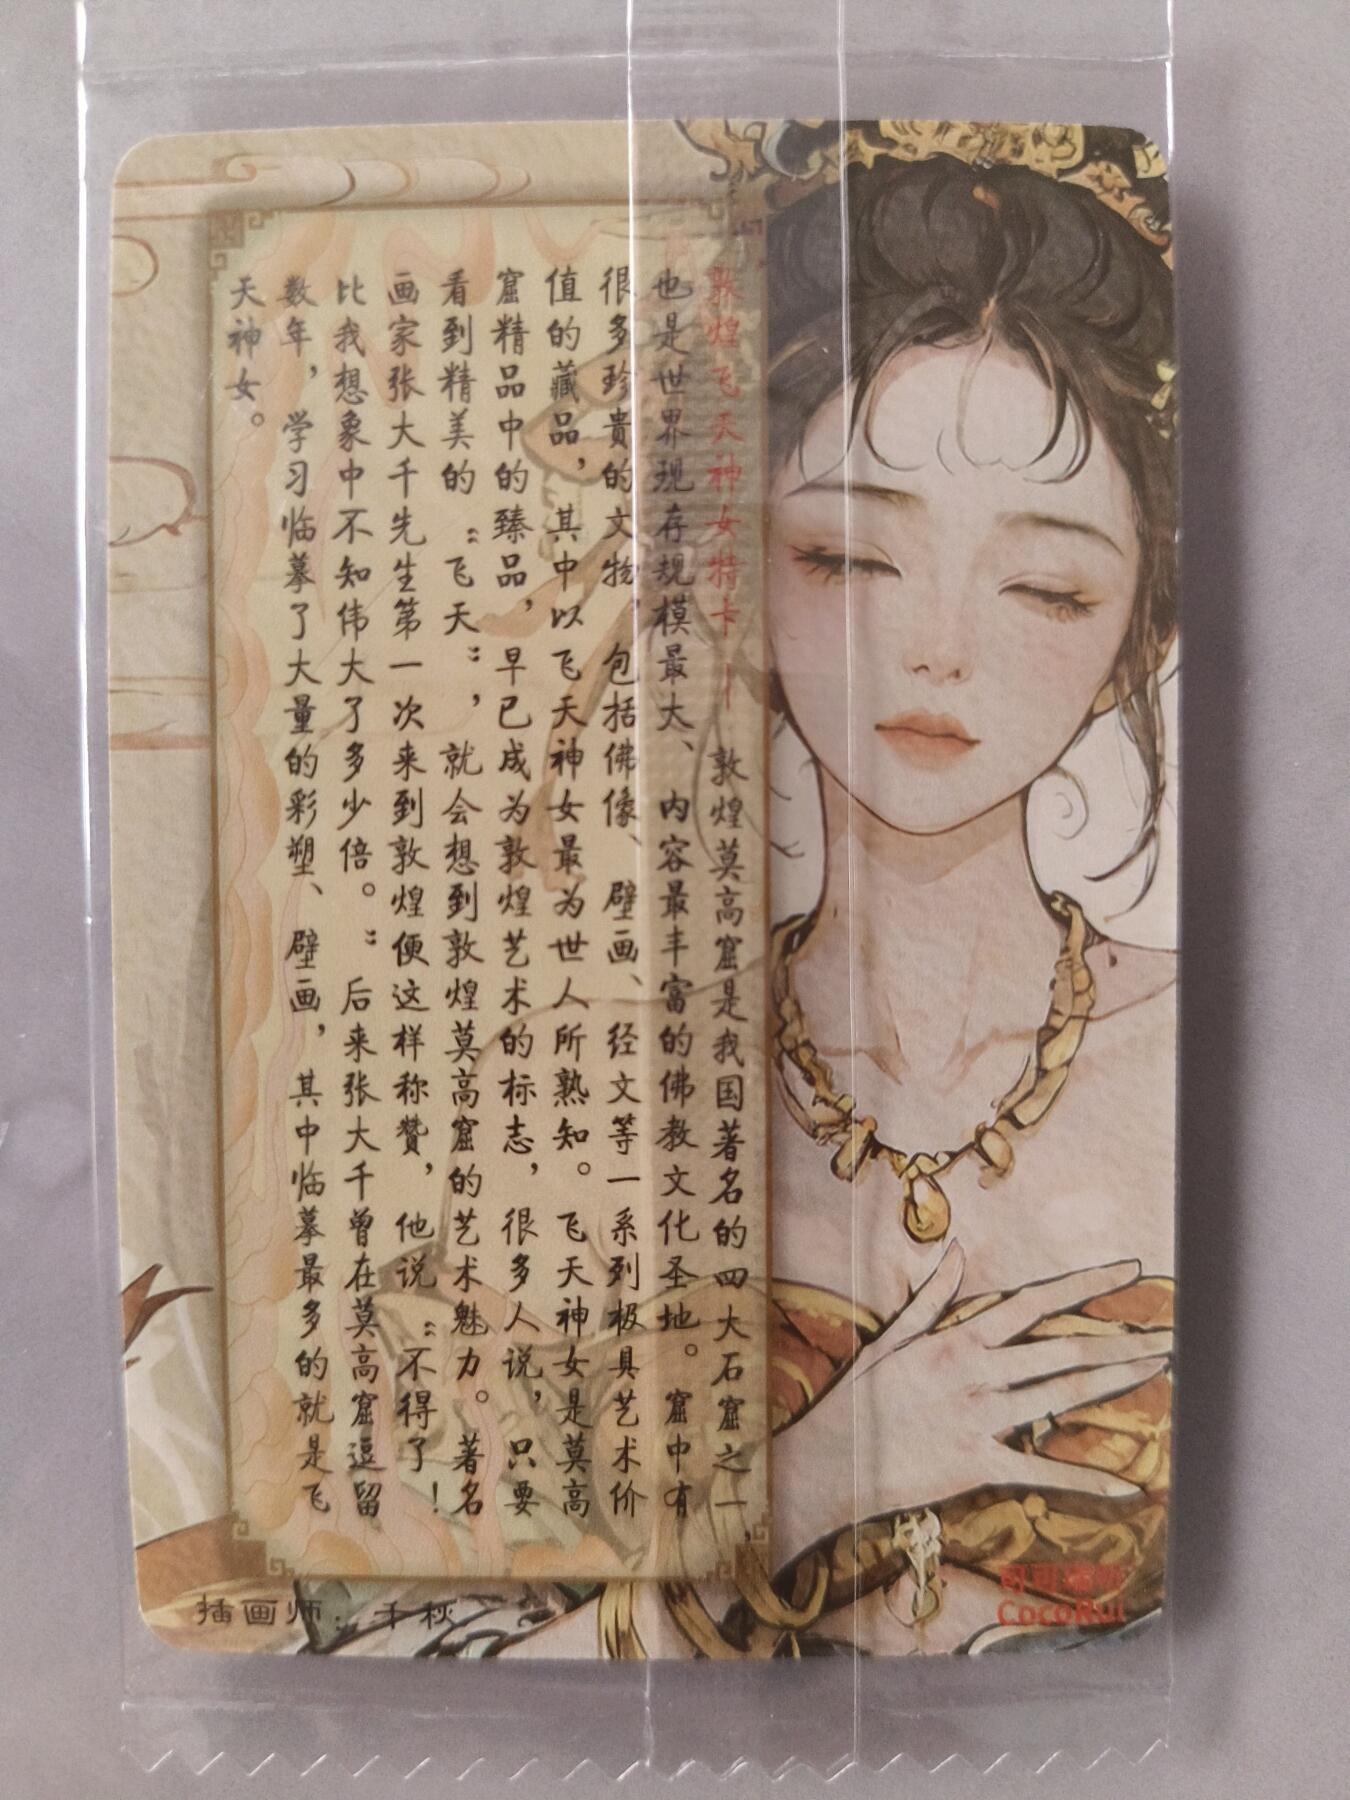 敦煌飞天神女特卡——敦煌莫高窟是我国著名的四大石窟之一，
也是世界现存规模最大、内容最丰富的佛教文化圣地。窟中有
很多珍贵的文物，包括佛像、壁画、经文等一系列极具艺术价
值的藏品，其中以飞天神女最为世人所熟知。飞天神女是莫高
窟精品中的臻品，早已成为敦煌艺术的标志，很多人说，只要
看到精美的“飞天”，就会想到敦煌莫高窟的艺术魅力。著名
画家张大千先生第一次来到敦煌便这样称赞，他说“不得了！
比我想象中不知伟大了多少倍。”后来张大千曾在莫高窟逗留
数年，学习临摹了大量的彩塑、壁画，其中临摹最多的就是飞
天神女。
插画师：千秋
CocoRui